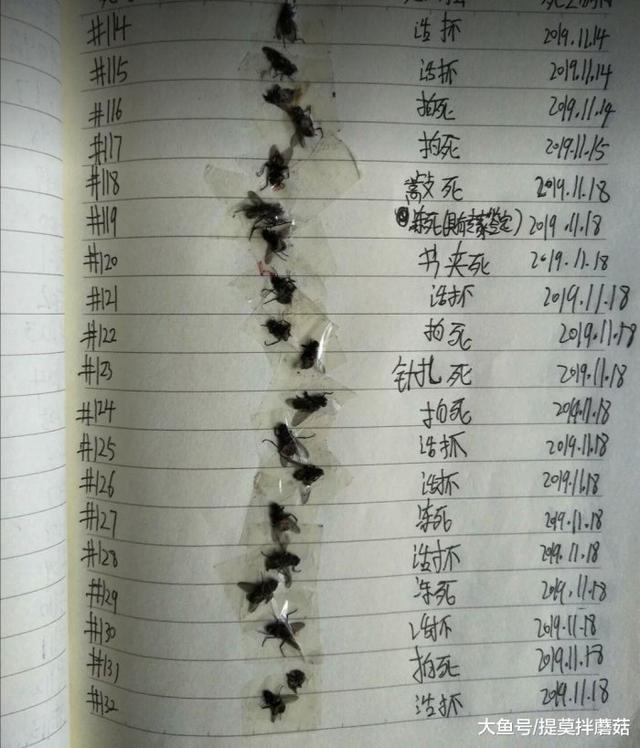 #114 活抓 2019.11.14
#115 活抓 2019.11.14
#116 拍死 2019.11.14
#117 拍死 2019.11.15
#118 敲死 2019.11.18
#119 冻死 2019.11.18
#120 书夹死 2019.11.18
#121 活抓 2019.11.18
#122 拍死 2019.11.18
#123 针扎死 2019.11.18
#124 拍死 2019.11.18
#125 活抓 2019.11.18
#126 活抓 2019.11.18
#127 冻死 2019.11.18
#128 活抓 2019.11.18
#129 冻死 2019.11.18
#130 活抓 2019.11.18
#131 拍死 2019.11.18
#132 活抓 2019.11.18
大鱼号/提莫拌蘑菇